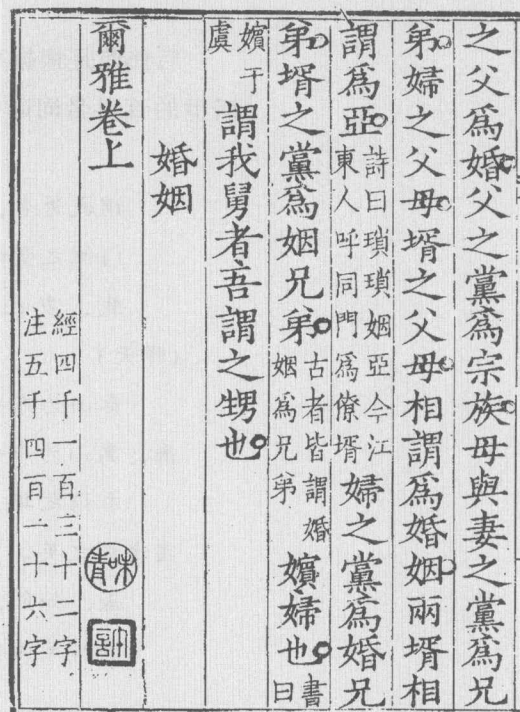 之父爲婚父之黨爲宗族母與妻之黨爲兄
弟婦之父母壻之父母相謂爲婚姻兩壻相
謂爲亞詩曰瑣瑣姻亞今江東人呼同門爲僚壻婦之黨爲婚兄
弟壻之黨爲姻兄弟古者皆謂婚姻爲兄弟嬪婦也書曰
嬪于虞謂我舅者吾謂之甥也
婚姻
爾雅卷上
經四千一百三十二字
注五千四百一十六字
味青